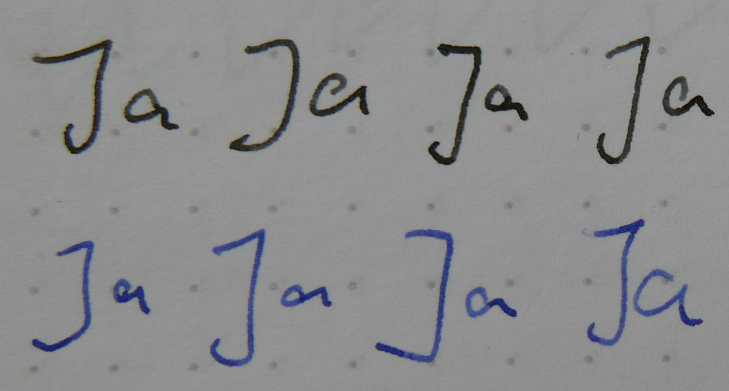 Ja Ja Ja Ja
Ja Ja Ja Ja